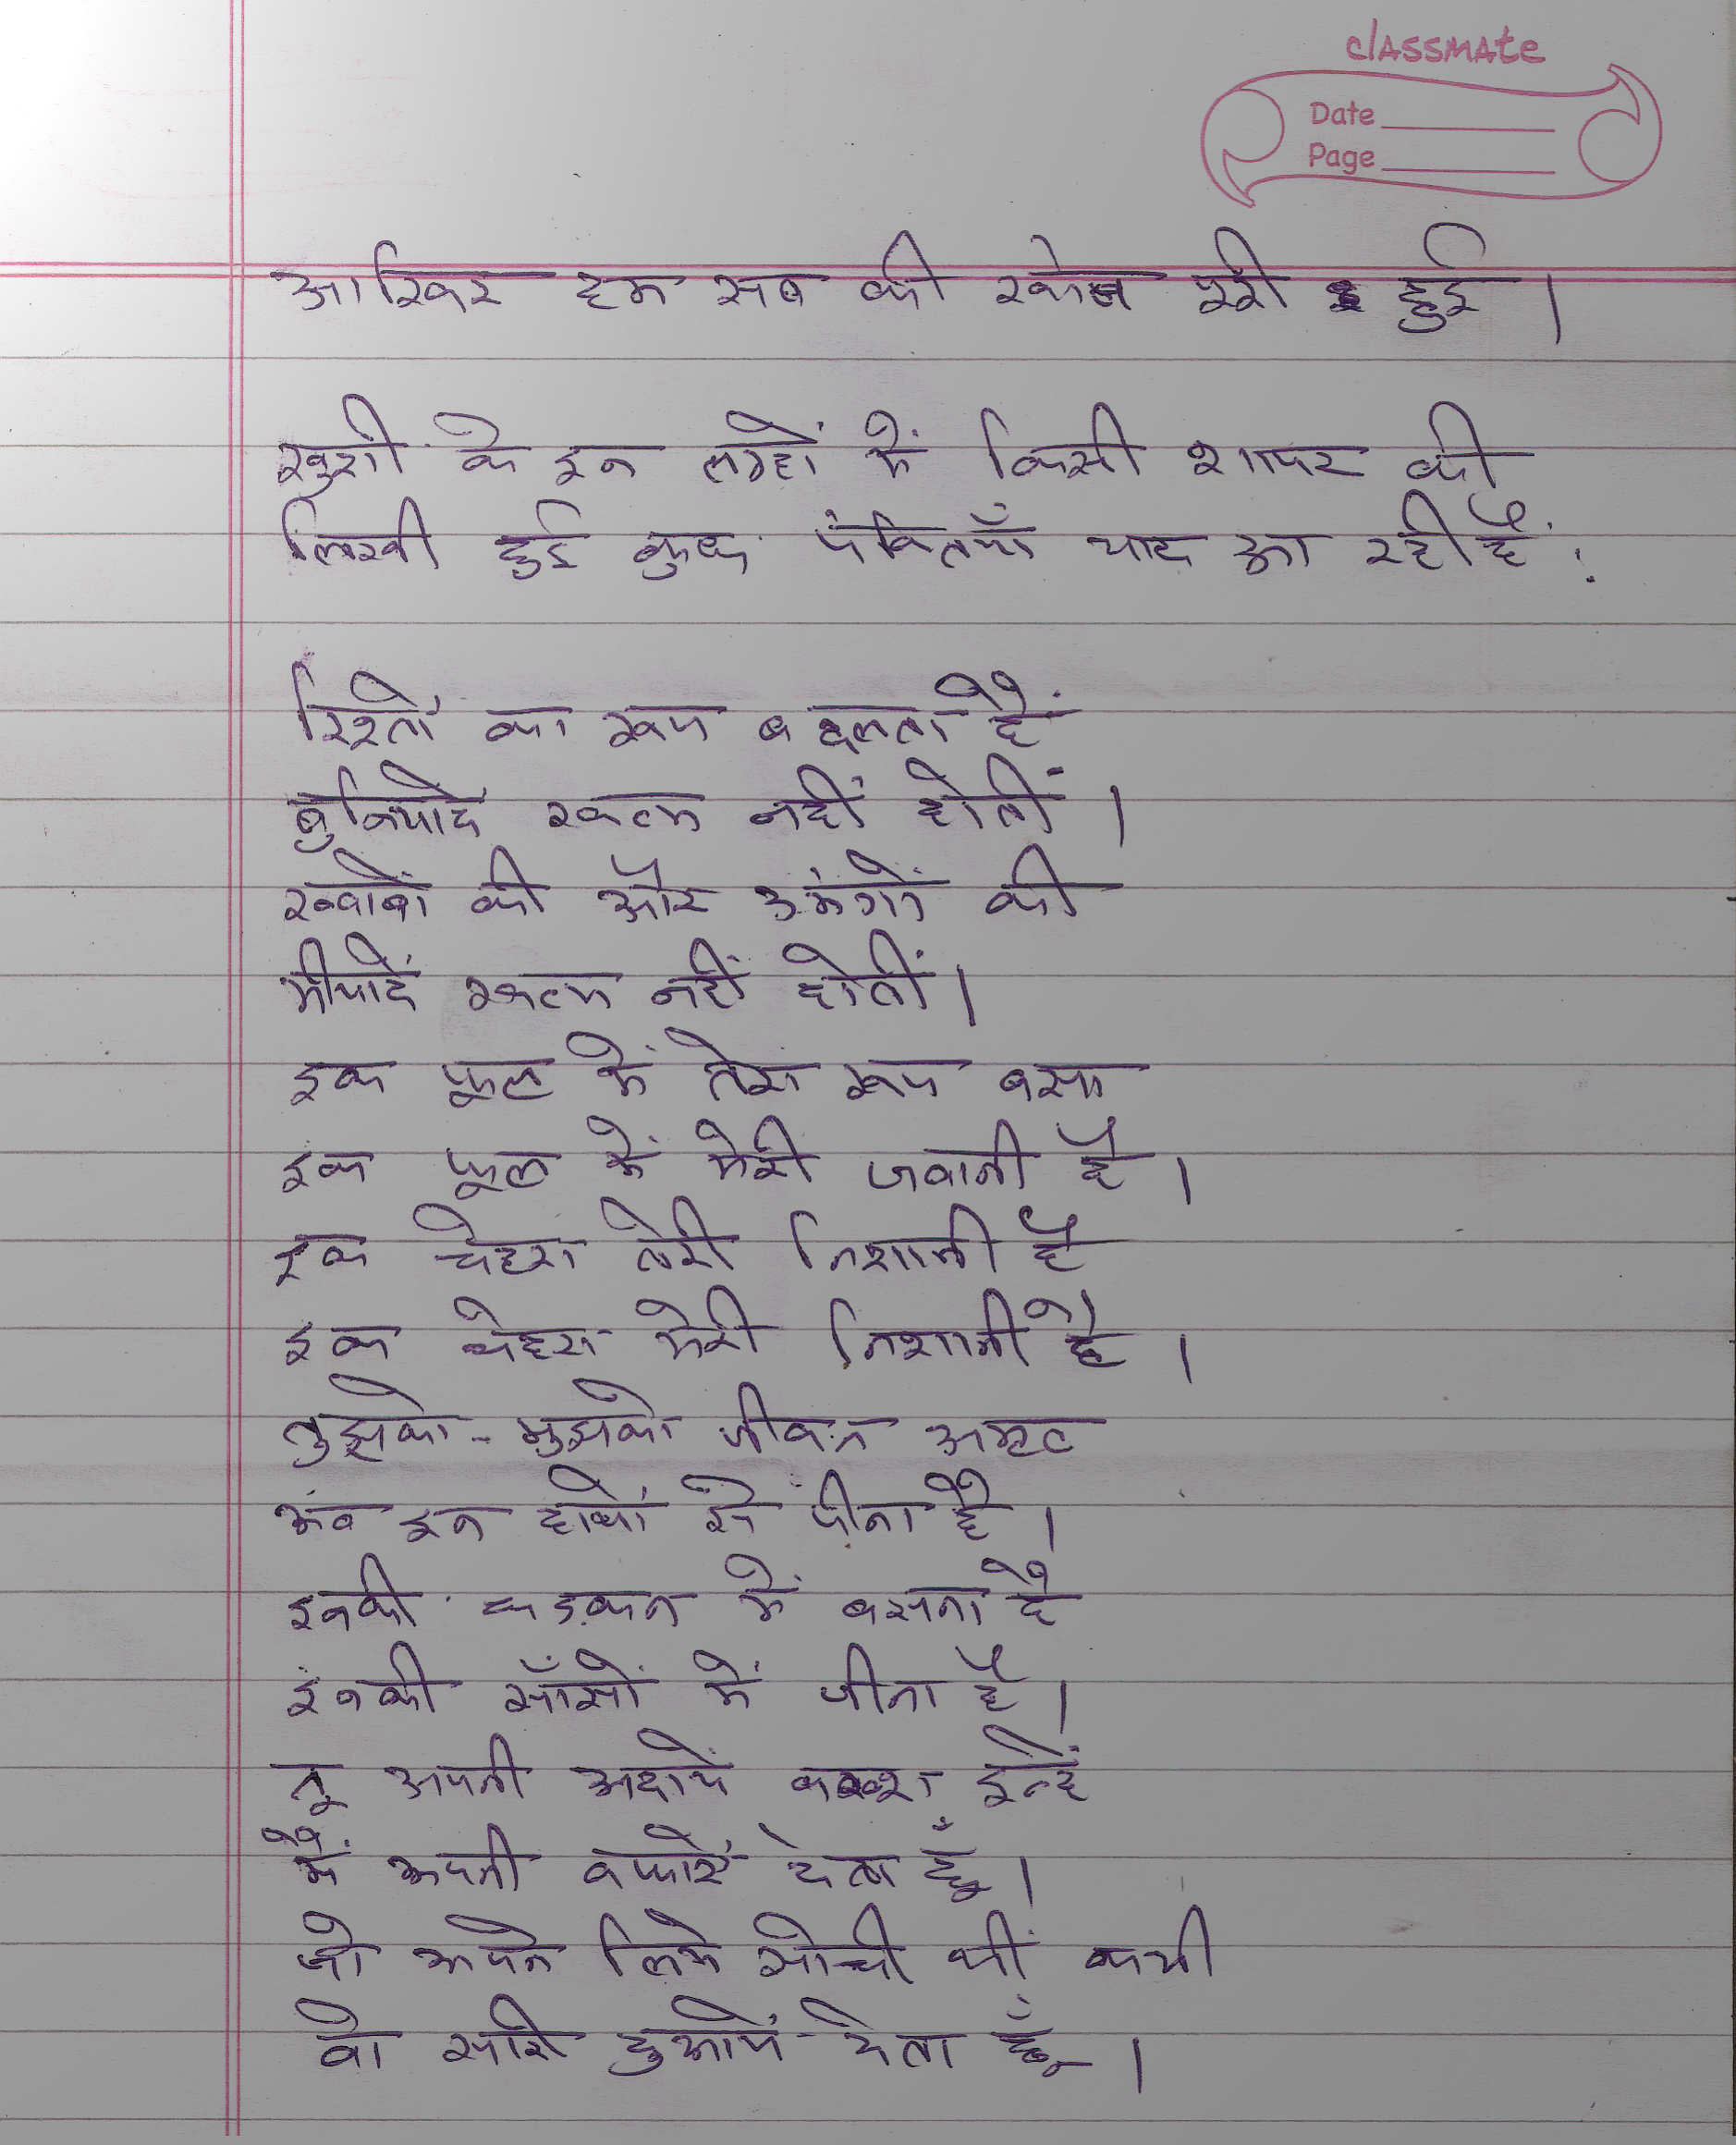 classmate
Date
Page
आखिर हम सब की खोज पूरी हुई।
खुशी के इन लम्हों में किसी शायर की
लिखी हुई कुछ पंक्तियाँ याद आ रही हैं:
रिश्तों का रूप बदलता है
बुनियादें खत्म नहीं होतीं।
ख्वाबों की और उमंगों की
मीयादें खत्म नहीं होतीं।
इक फूल में तेरा रूप बसा
इक फूल में मेरी जवानी है।
इक चेहरा तेरी निशानी है
इक चेहरा मेरी निशानी है।
तुझको-मुझको जीवन अमृत
अब इन हाथों से पीना है।
इनकी धड़कन में बसना है
इनकी साँसों में जीना है।
तू अपनी अदायें बख्श इन्हें
मैं अपनी वफायें देता हूँ।
जो अपने लिये सोची थीं कभी
वो सारी दुआयें देता हूँ।